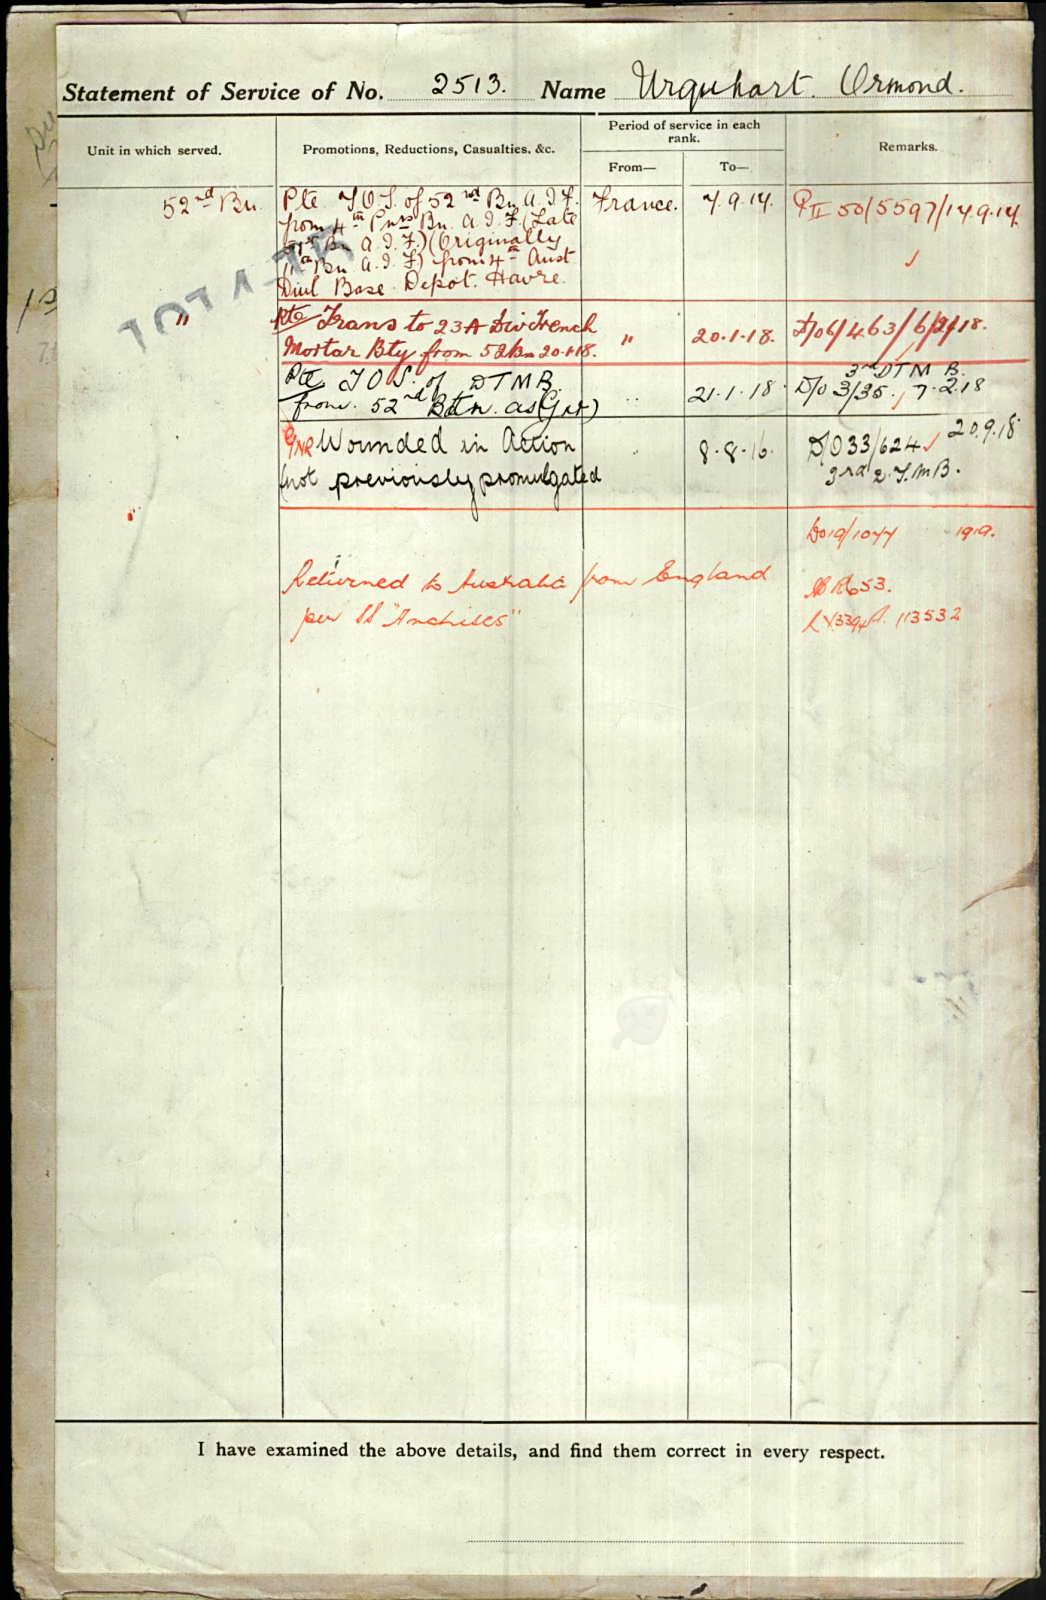 Statement of Service of No. 2513. Name Urquhart. Ormond.
Unit in which served.
Promotions, Reductions, Casualties, &c.
Period of service in each
rank.
From—
To—
Remarks.
52nd Bn.
Pte T.O.S. of 52nd Bn A.I.F.
from 4th Pnrs Bn. A.I.F. (Late
Bn A.I.F.) (Originally
Bn A.I.F.) from 4th Aust
Divl Base Depot. Havre.
France.
7.9.17.
PII 50/5597/14.9.17.
"
Pte Trans to 23A Div Trench
Mortar Bty from 52 Bn 20.1.18.
"
20.1.18.
D/O6/463/6/2/18.
Pte T O S. of DTMB.
from. 52nd Btn. as (Gnr)
"
21.1.18.
3rd DTM B.
D/O 3/35. 7.2.18
GNR Wounded in Action
(not previously promulgated
8.8.16.
D/O33/624 20.9.18
3rd D.T.M.B.
DO19/1044 1919.
Returned to Australia from England
per SS "Anchises"
653.
113532
I have examined the above details, and find them correct in every respect.